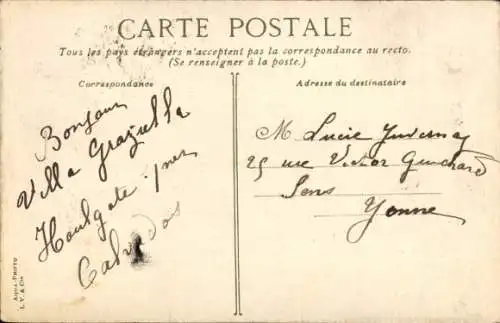 CARTE POSTALE
Tous les pays étrangers n'acceptent pas la correspondance au recto.
(Se renseigner à la poste.)
Correspondance
Bonjour
Villa Graziella
Houlgate
Calvados
Adresse du destinataire
M Lucie Juvesnay
25 rue Victor Guichard
Sens
Yonne
AQUA-PHOTO
L. V. & Cie